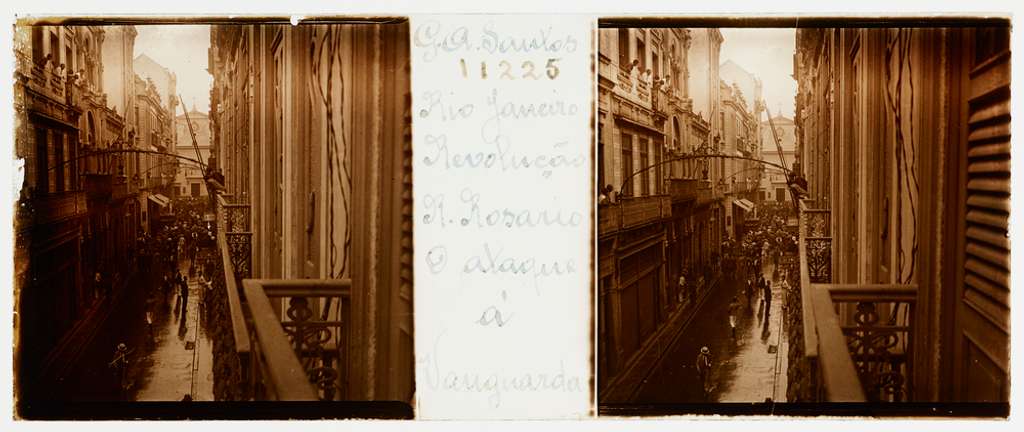 G. A. Santos
11225
Rio Janeiro
Revolução
R. Rosario
O ataque
á
Vanguarda